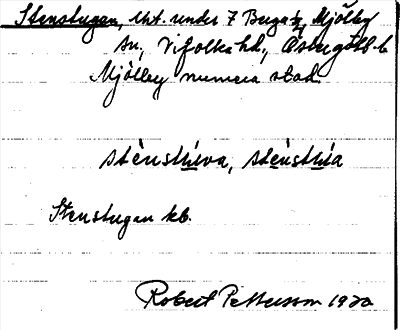 Stenstugan, lht. under 7 Berga ½, Mjölby
sn, Vifolka hd, Östergötl. l.
Mjölby numera stad.
stènstúva, stènstúa
Stenstugan kb.
Robert Pettersson 1920